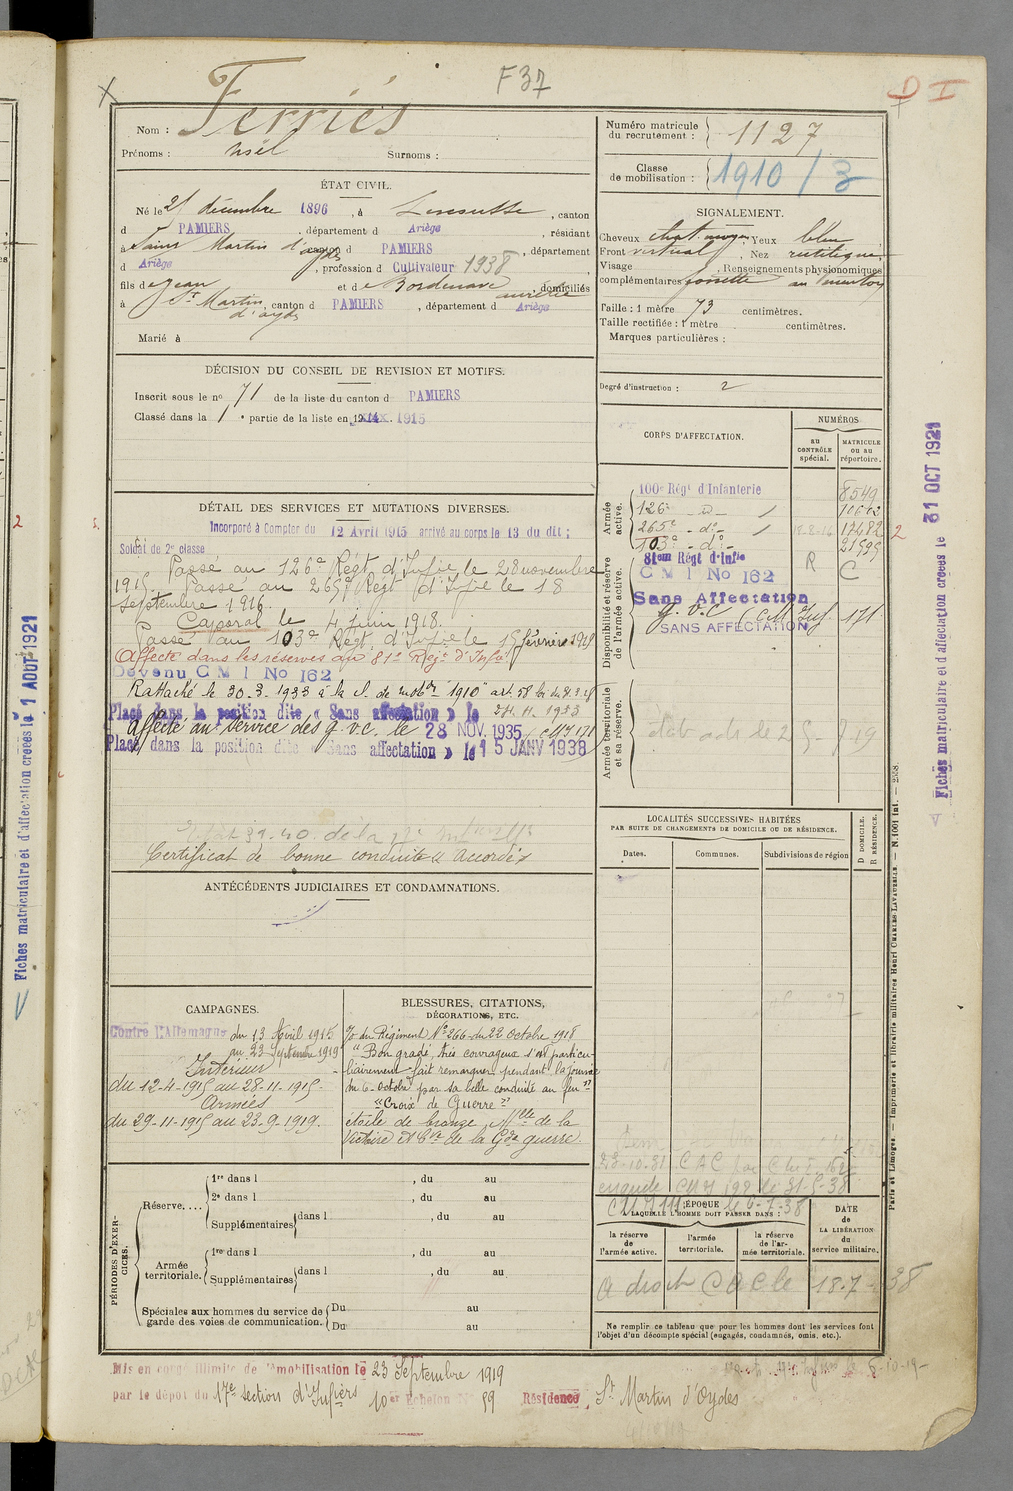 F 37
D I
Ferriès
Nom :
Prénoms :
Surnoms :
Numéro matricule du recrutement : 1127
Classe de mobilisation : 1910 / 3
ÉTAT CIVIL.
Né le 25 décembre 1896, à Lescousse, canton
d PAMIERS, département d Ariège, résidant
à Saint Martin d'oydes canton d PAMIERS, département
d Ariège, profession d Cultivateur 1938
fils de Jean et de Bordenave aurélie, domiciliés
à St Martin d'oydes, canton d PAMIERS, département d Ariège
Marié à
SIGNALEMENT.
Cheveux chat. moyen, Yeux bleu
Front vertical, Nez rectiligne
Visage , Renseignements physionomiques
complémentaires fossette au menton
Taille : 1 mètre 73 centimètres.
Taille rectifiée : 1 mètre centimètres.
Marques particulières :
Degré d'instruction : 2
DÉCISION DU CONSEIL DE REVISION ET MOTIFS.
Inscrit sous le no 71 de la liste du canton d PAMIERS
Classé dans la 1 e partie de la liste en 1915
DÉTAIL DES SERVICES ET MUTATIONS DIVERSES.
Incorporé à Compter du 12 Avril 1915 arrivé au corps le 13 du dit ;
Soldat de 2e classe
Passé au 126e Régt d'Infie le 28 novembre
1915. Passé au 265e Régt d'Infie le 18
septembre 1916.
Caporal le 4 juin 1918.
Passé au 103e Régt d'Infie le 15 février 1919
Affecté dans les réserves au 81e Régt d'Infie
Devenu C M I No 162
Rattaché le 30-3-1933 à la cl. de mobon "1910" art. 58
Placé dans la position dite « Sans affectation » le 24.11.1933
Affecté au service des g.v.c. le 28 NOV. 1935 (CMI 171)
Placé dans la position dite « Sans affectation » le 15 JANV 1938
Certificat de bonne conduite « Accordé »
CORPS D'AFFECTATION.
NUMÉROS
au CONTRÔLE spécial.
MATRICULE ou au répertoire.
Armée active.
100e Régt d'Infanterie 8549
126e - d° -
265e - d° - 17482
103e - d° - 21595
Disponibilité et réserve de l'armée active.
81em Régt d'Infie
C M I No 162 R C
Sans Affectation
G.V.C. 171
SANS AFFECTATION
Armée territoriale et sa réserve.
LOCALITÉS SUCCESSIVES HABITÉES
PAR SUITE DE CHANGEMENTS DE DOMICILE OU DE RÉSIDENCE.
Dates.
Communes.
Subdivisions de région
D DOMICILE.
R RÉSIDENCE.
ANTÉCÉDENTS JUDICIAIRES ET CONDAMNATIONS.
CAMPAGNES.
Contre l'Allemagne du 13 Avril 1915
au 23 Septembre 1919
Intérieur
du 12-4-1915 au 28-11-1915
Armées
du 29-11-1915 au 23-9-1919.
BLESSURES, CITATIONS,
DÉCORATIONS, ETC.
O du Régiment No 266 du 22 octobre 1918
"Bon gradé, très courageux s'est particu-
lièrement fait remarquer pendant la journée
du 6 octobre par sa belle conduite au feu"
"Croix de Guerre"
étoile de bronze, Mlle de la
Victoire et Cve de la Gde guerre.
23-10-31 CAC
ÉPOQUE
À LAQUELLE L'HOMME DOIT PASSER DANS :
la réserve de l'armée active.
l'armée territoriale.
la réserve de l'armée territoriale.
DATE de LA LIBÉRATION du service militaire.
A droit CAC le 18-7-38
Ne remplir ce tableau que pour les hommes dont les services font
l'objet d'un décompte spécial (engagés, condamnés, omis, etc.).
PÉRIODES D'EXERCICES.
Réserve....
1re dans l , du au
2e dans l , du au
Supplémentaires dans l , du au
Armée territoriale.
1re dans l , du au
Supplémentaires dans l , du au
Spéciales aux hommes du service de garde des voies de communication.
Du au
Du au
Mis en congé illimité de démobilisation le 23 Septembre 1919
par le dépôt du 17e section d'Infiers 10e Echelon No 59 Résidence, St Martin d'Oydes
Fiches matriculaire et d'affectation créées le 1 AOUT 1921
Fiches matriculaire et d'affectation créées le 31 OCT 1921
Paris et Limoges. — Imprimerie et librairie militaires Henri CHARLES-LAVAUZELLE. — N. 1001 int. — 2558.